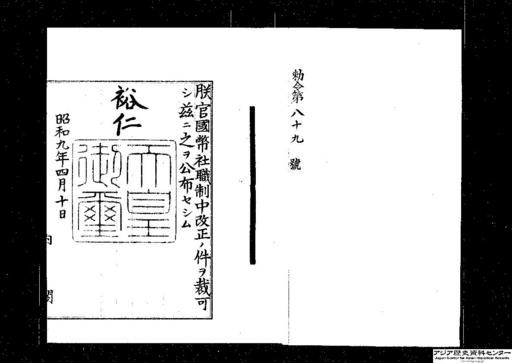 勅令第八十九號
朕官國幣社職制中改正ノ件ヲ裁可
シ茲ニ之ヲ公布セシム
裕仁
天皇御璽
昭和九年四月十日
内閣
アジア歴史資料センター
Japan Center for Asian Historical Records